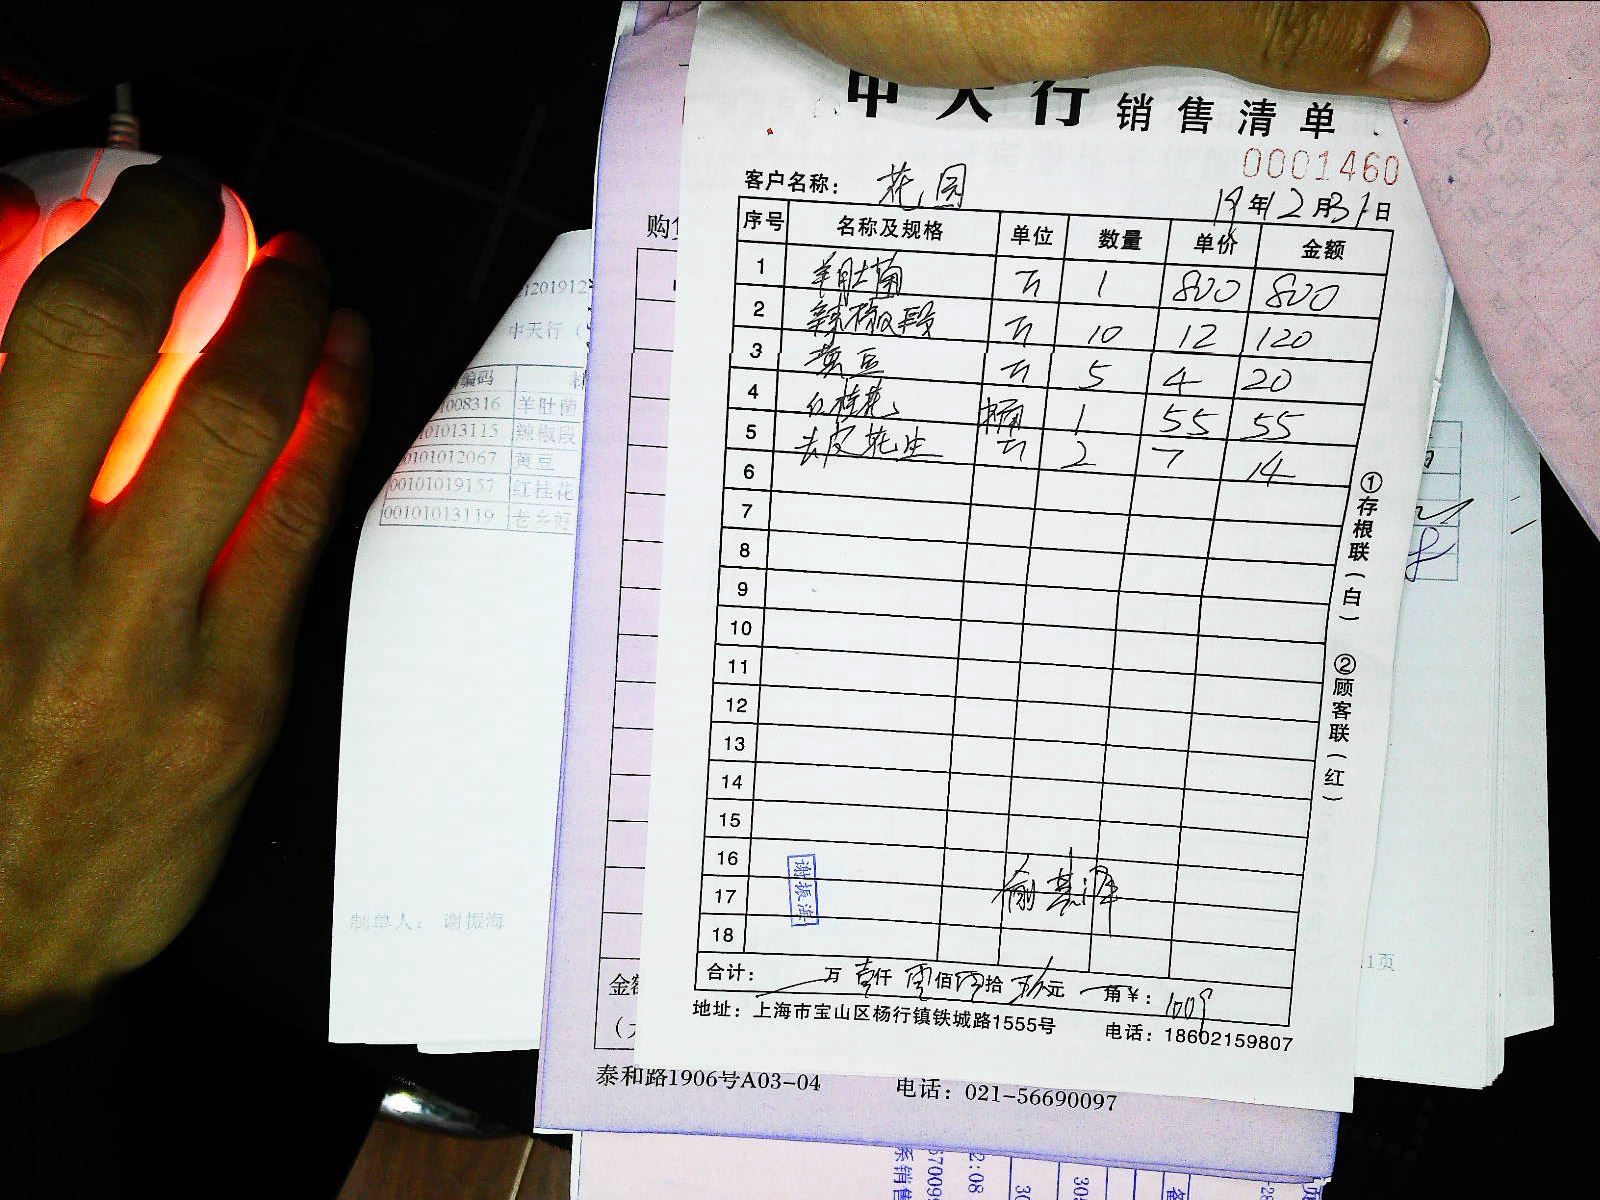 中天行 销售清单
0001460
客户名称： 花园
19年12月31日
序号 名称及规格 单位 数量 单价 金额
1 羊肚菌 斤 1 800 800
2 辣椒段 斤 10 12 120
3 黄豆 斤 5 4 20
4 红桂花 桶 1 55 55
5 去皮花生 斤 2 7 14
6
7
8
9
10
11
12
13
14
15
16
17
18
谢振海
合计： 万 壹仟 零佰 零拾 玖元 角￥： 1009
地址：上海市宝山区杨行镇铁城路1555号 电话：18602159807
①存根联（白） ②顾客联（红）
泰和路1906号A03-04 电话：021-56690097
中天行（
编码
008316 羊肚菌
01013115 辣椒段
0101012067 黄豆
00101019157 红桂花
00101013119 老乡好
制单人： 谢振海
1页